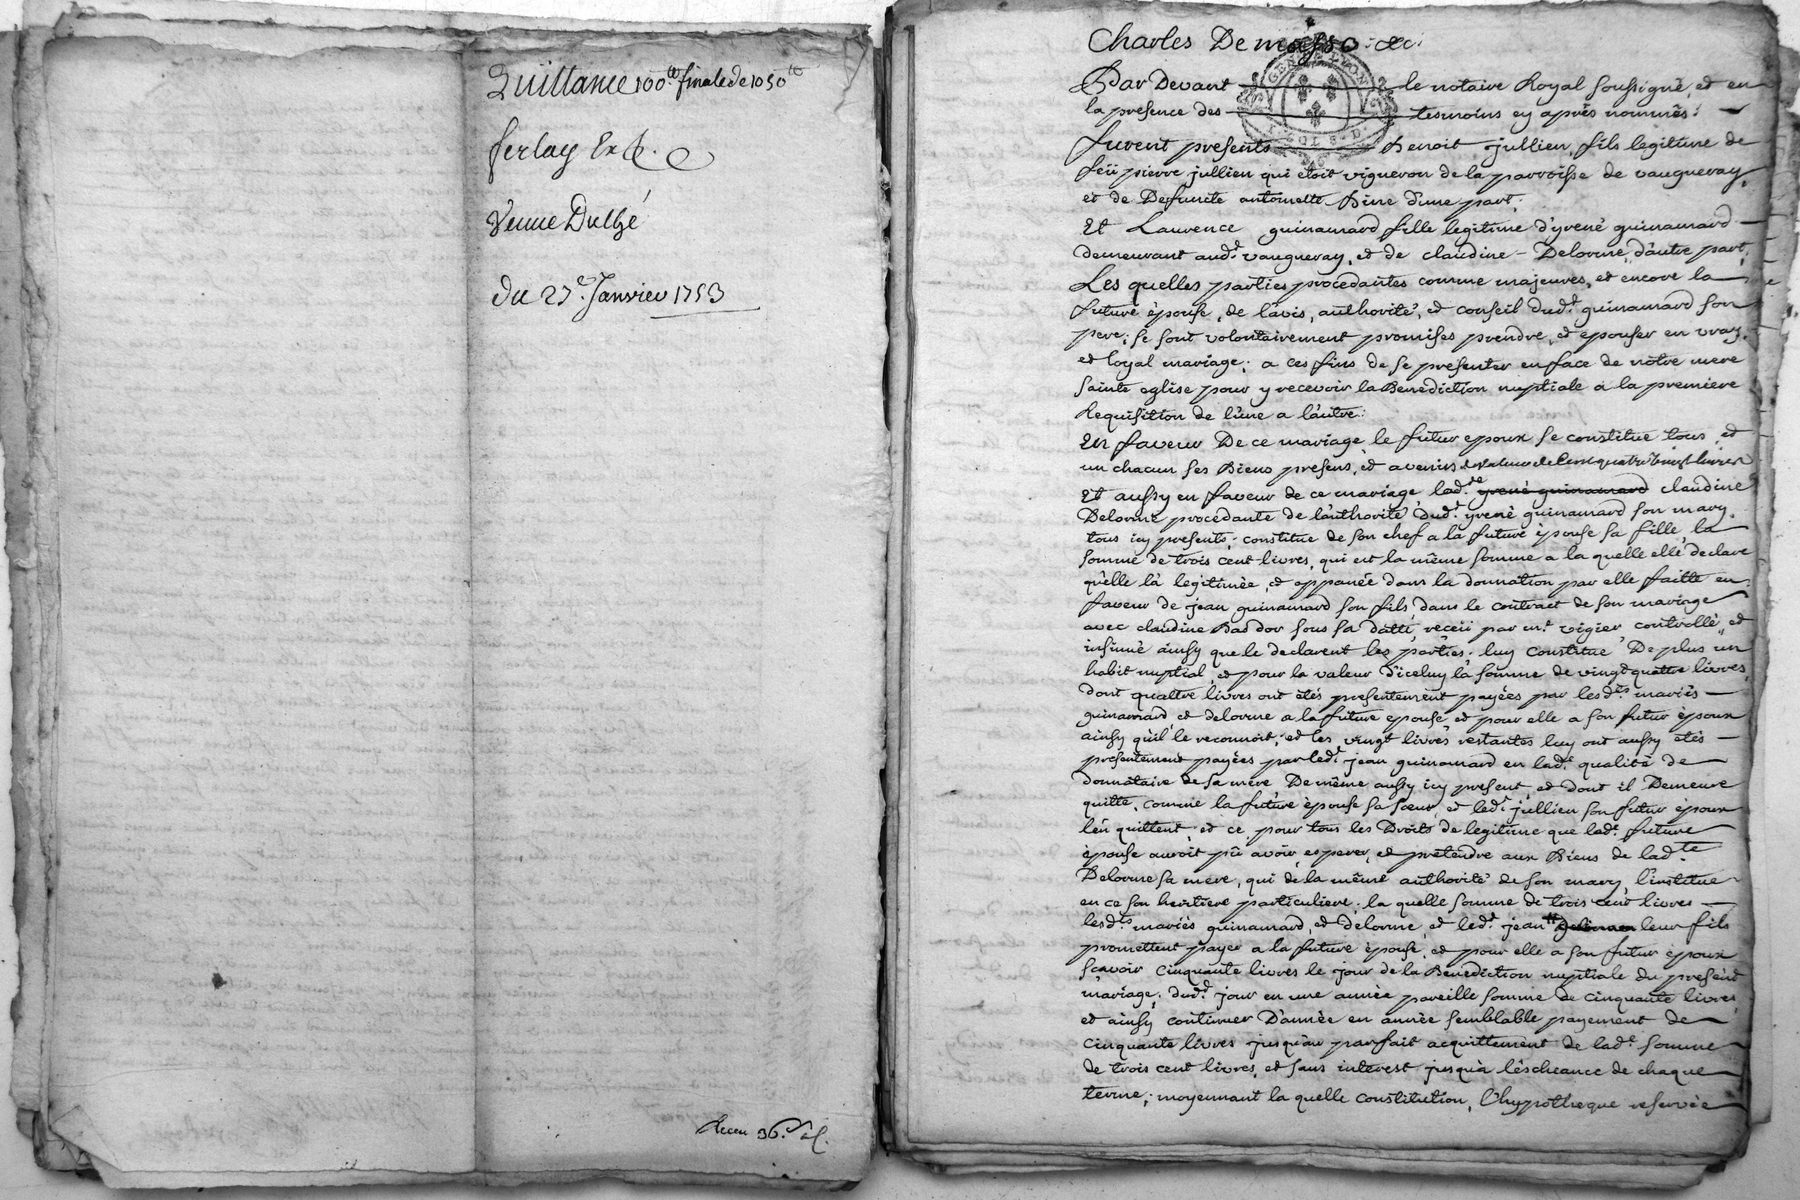 Quittance 100.tt finale de 1050tt
ferlay Ex
Veuve Dulhé
du 27e. Janvier 1753
Receu 36.s
Charles De masso &c:
Par Devant le notaire Royal soussigné, et en
la presence des tesmoins cy après nommés:
furent presents Benoit jullien, fils legitime de
feü pierre jullien qui étoit vigneron de la parroisse de vaugneray,
et de Defuncte antoinette Bine d'une part;
Et Laurence guinamard fille legitime d'yrené guinamard
demeurant aud.t vaugneray, et de claudine Delorme, d'autre part,
Les quelles parties procedantes comme majeures, et encore la
future épouse, de l'avis, authorité, et conseil dud.t guinamard son
pere; se sont volontairement promises prendre, et epouser en vray,
et loyal mariage; a ces fins de se presenter en face de nôtre mere
sainte eglise pour y recevoir la Benediction nuptiale a la premiere
Requisition de l'une a l'autre:
En faveur De ce mariage le futur epoux se constitue tous, et
un chacun ses Biens presens, et avenirs de valeur de Cent quatre vingt livres
Et aussy en faveur de ce mariage lad.te yrené guinamard claudine
Delorme procedante de l'authorité dud.t yrené guinamard son mary,
tous icy presents; constitue de son chef a la future épouse sa fille, la
somme de trois cent livres, qui est la même somme a la quelle elle declare
qu'elle l'a legitimée, et appanée dans la donnation par elle faitte en
faveur de jean guinamard son fils dans le contract de son mariage
avec claudine Bador sous sa datte, receü par m.e vigier controllé, et
insinué ainsy que le declarent les parties. luy constitue De plus un
habit nuptial, et pour la valeur d'iceluy la somme de vingt quatre livres,
dont quattre livres ont étés presentement payées par lesd.ts mariés
guinamard et delorme a la future epouse et pour elle a son futur époux
ainsy qu'il le reconnoit; et les vingt livres restantes luy ont aussy étés
presentement payées par led.t jean guinamard en lad.e qualité de
donnataire de sa mere De même aussy icy present et dont il Demeure
quitte, comme la future épouse sa soeur, et led.t jullien son futur époux
l'en quittent; et ce pour tous les Droits de legitime que lad.e future
épouse auroit pü avoir, esperer, et prétendre aux Biens de lad.te
Delorme sa mere, qui de la même authorité de son mary, l'institue
en ce son heritiere particuliere; la quelle somme de trois cent livres
lesd.ts mariés guinamard, et delorme, et led.t jean leur fils
promettent payer a la future épouse, et pour elle a son futur époux
scavoir cinquante livres le jour de la Benediction nuptiale du present
mariage; dud.t jour en une année pareille somme de cinquante livres,
et ainsy continuer D'année en année semblable payement de
cinquante livres jusqu'au parfait acquittement de lad.e somme
de trois cent livres, et sans interest jusqu'à l'escheance de chaque
terme; moyennant la quelle constitution, l'hypotheque reservée